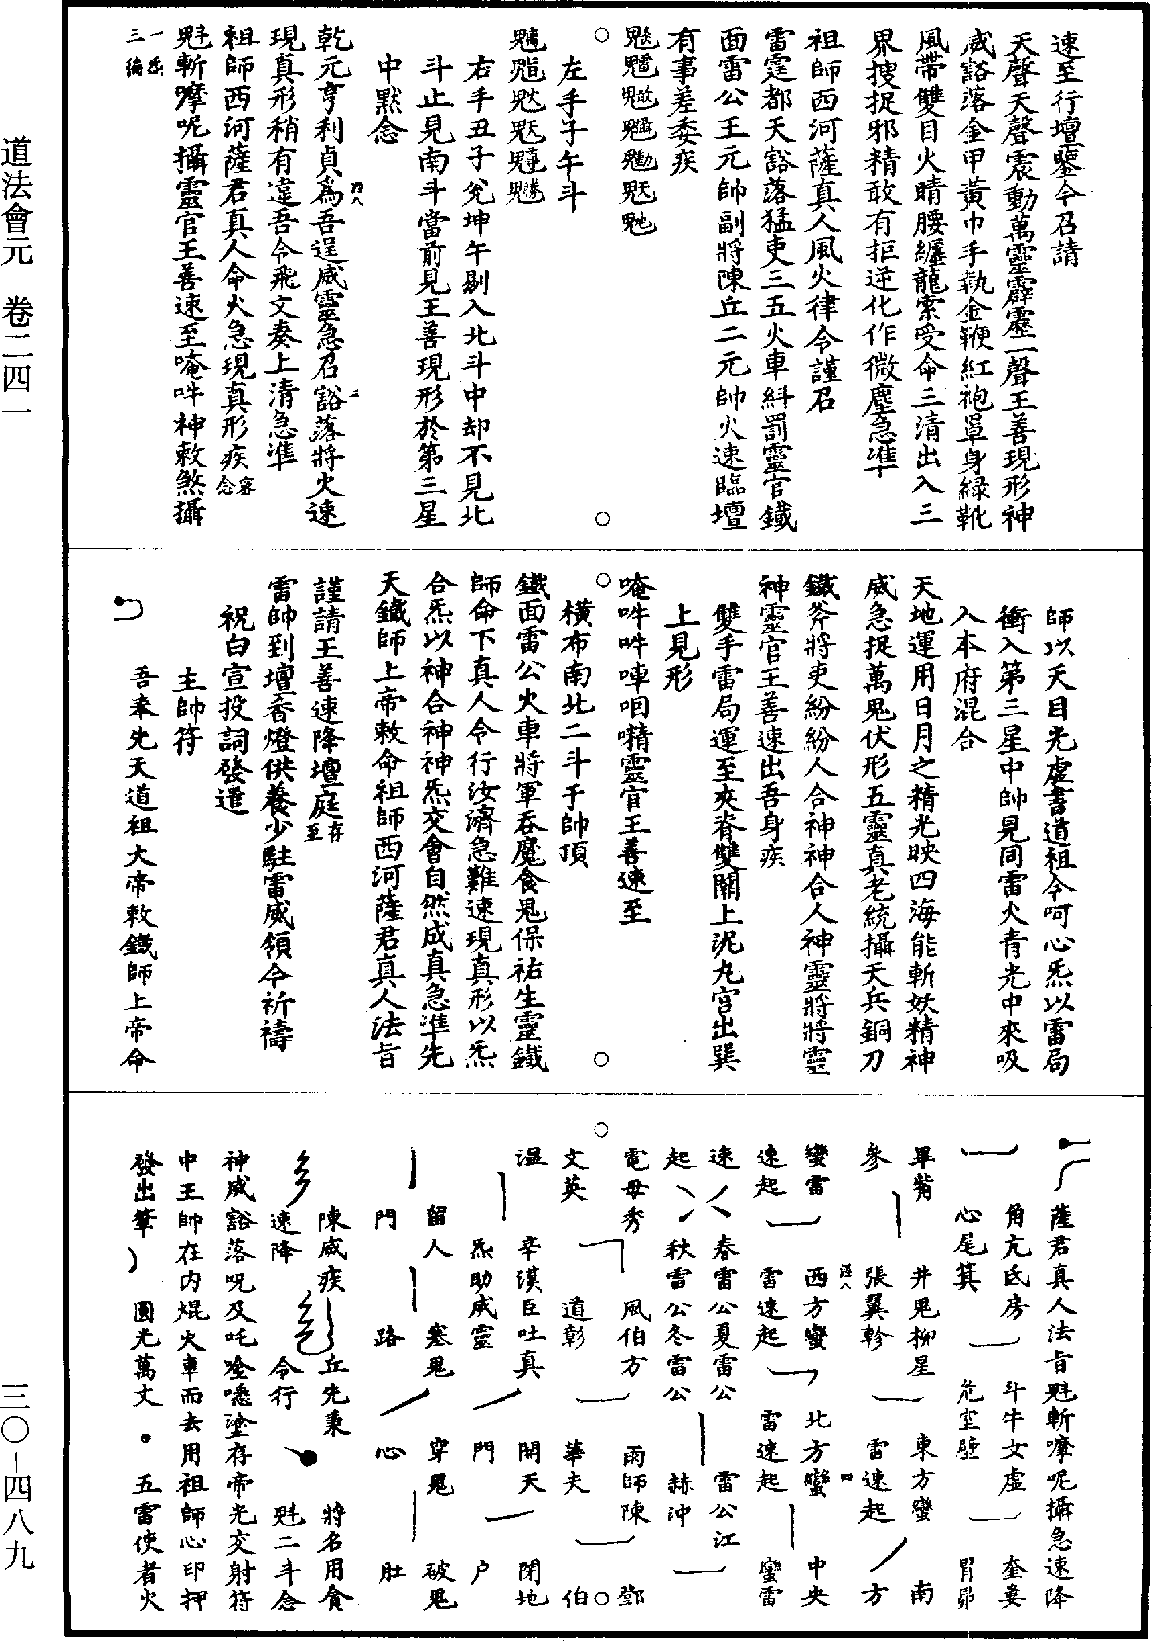 速至行壇鑒今召請
天聲天聲震動萬靈霹靂一聲王善現形神
威豁落金甲黃巾手執金鞭紅袍罩身綠靴
風帶雙目火睛腰纏龍索受命三清出入三
界搜捉邪精敢有拒逆化作微塵急準
祖師西河薩真人風火律令謹召
雷霆都天豁落猛吏三五火車糾罰靈官鐵
面雷公王元帥副將陳丘二元帥火速臨壇
有事差委疾
左手子午斗
右手丑子兌坤午剔入北斗中却不見北
斗止見南斗當前見王善現形於第三星
中默念
乾元亨利貞為吾逞威靈急召豁落將火速
現真形稍有違吾令飛文奏上清急準
祖師西河薩君真人命火急現真形疾
魁斬嚤呢攝靈官王善速至唵吽神敕煞攝
一炁
三遍
師以天目光虛書道祖令呵心炁以雷局
衝入第三星中帥見同雷火青光中來吸
入本府混合
天地運用日月之精光映四海能斬妖精神
威急捉萬鬼伏形五靈真老統攝天兵銅刀
鐵斧將吏紛紛人合神神合人神靈將將靈
神靈官王善速出吾身疾
雙手雷局運至夾脊雙關上泥丸宮出巽
上見形
唵吽吽㖿啒囋靈官王善速至
橫布南北二斗于帥頂
鐵面雷公火車將軍吞魔食鬼保祐生靈鐵
師命下真人令行汝濟急難速現真形以炁
合炁以神合神神炁交會自然成真急準先
天鐵師上帝敕命祖師西河薩君真人法旨
謹請王善速降壇庭存至
雷帥到壇香燈供養少駐雷威領令祈禱
祝白宣投詞發遣
主帥符
吾奉先天道祖大帝敕鐵師上帝命
薩君真人法旨魁斬嚤呢攝急速降
角亢氐房 斗牛女虛 奎婁
心尾箕 危室壁 胃昴
畢觜 井鬼柳星 東方蠻 南
參 張翼軫 雷速起 方
蠻雷 西方蠻 北方蠻 中央
速起 雷速起 雷速起 蠻雷
速 春雷公夏雷公 雷公江
起 秋雷公冬雷公 赫沖
電母秀 風伯方 雨師陳 鄧
文英 道彰 華夫 伯
溫 辛漢臣吐真 開天 閉地
炁助威靈 門 戶
留人 塞鬼 穿鬼 破鬼
門 路 心 肚
陳威疾 丘先秉 將名用食
速降 令行 魁二斗念
神威豁落呪及吒唵噁塗存帝光交射符
中王帥在內焜火車而去用祖師心印押
發出筆 圓光萬丈 五雷使者火
道法會元 卷二四一
三〇-四八九